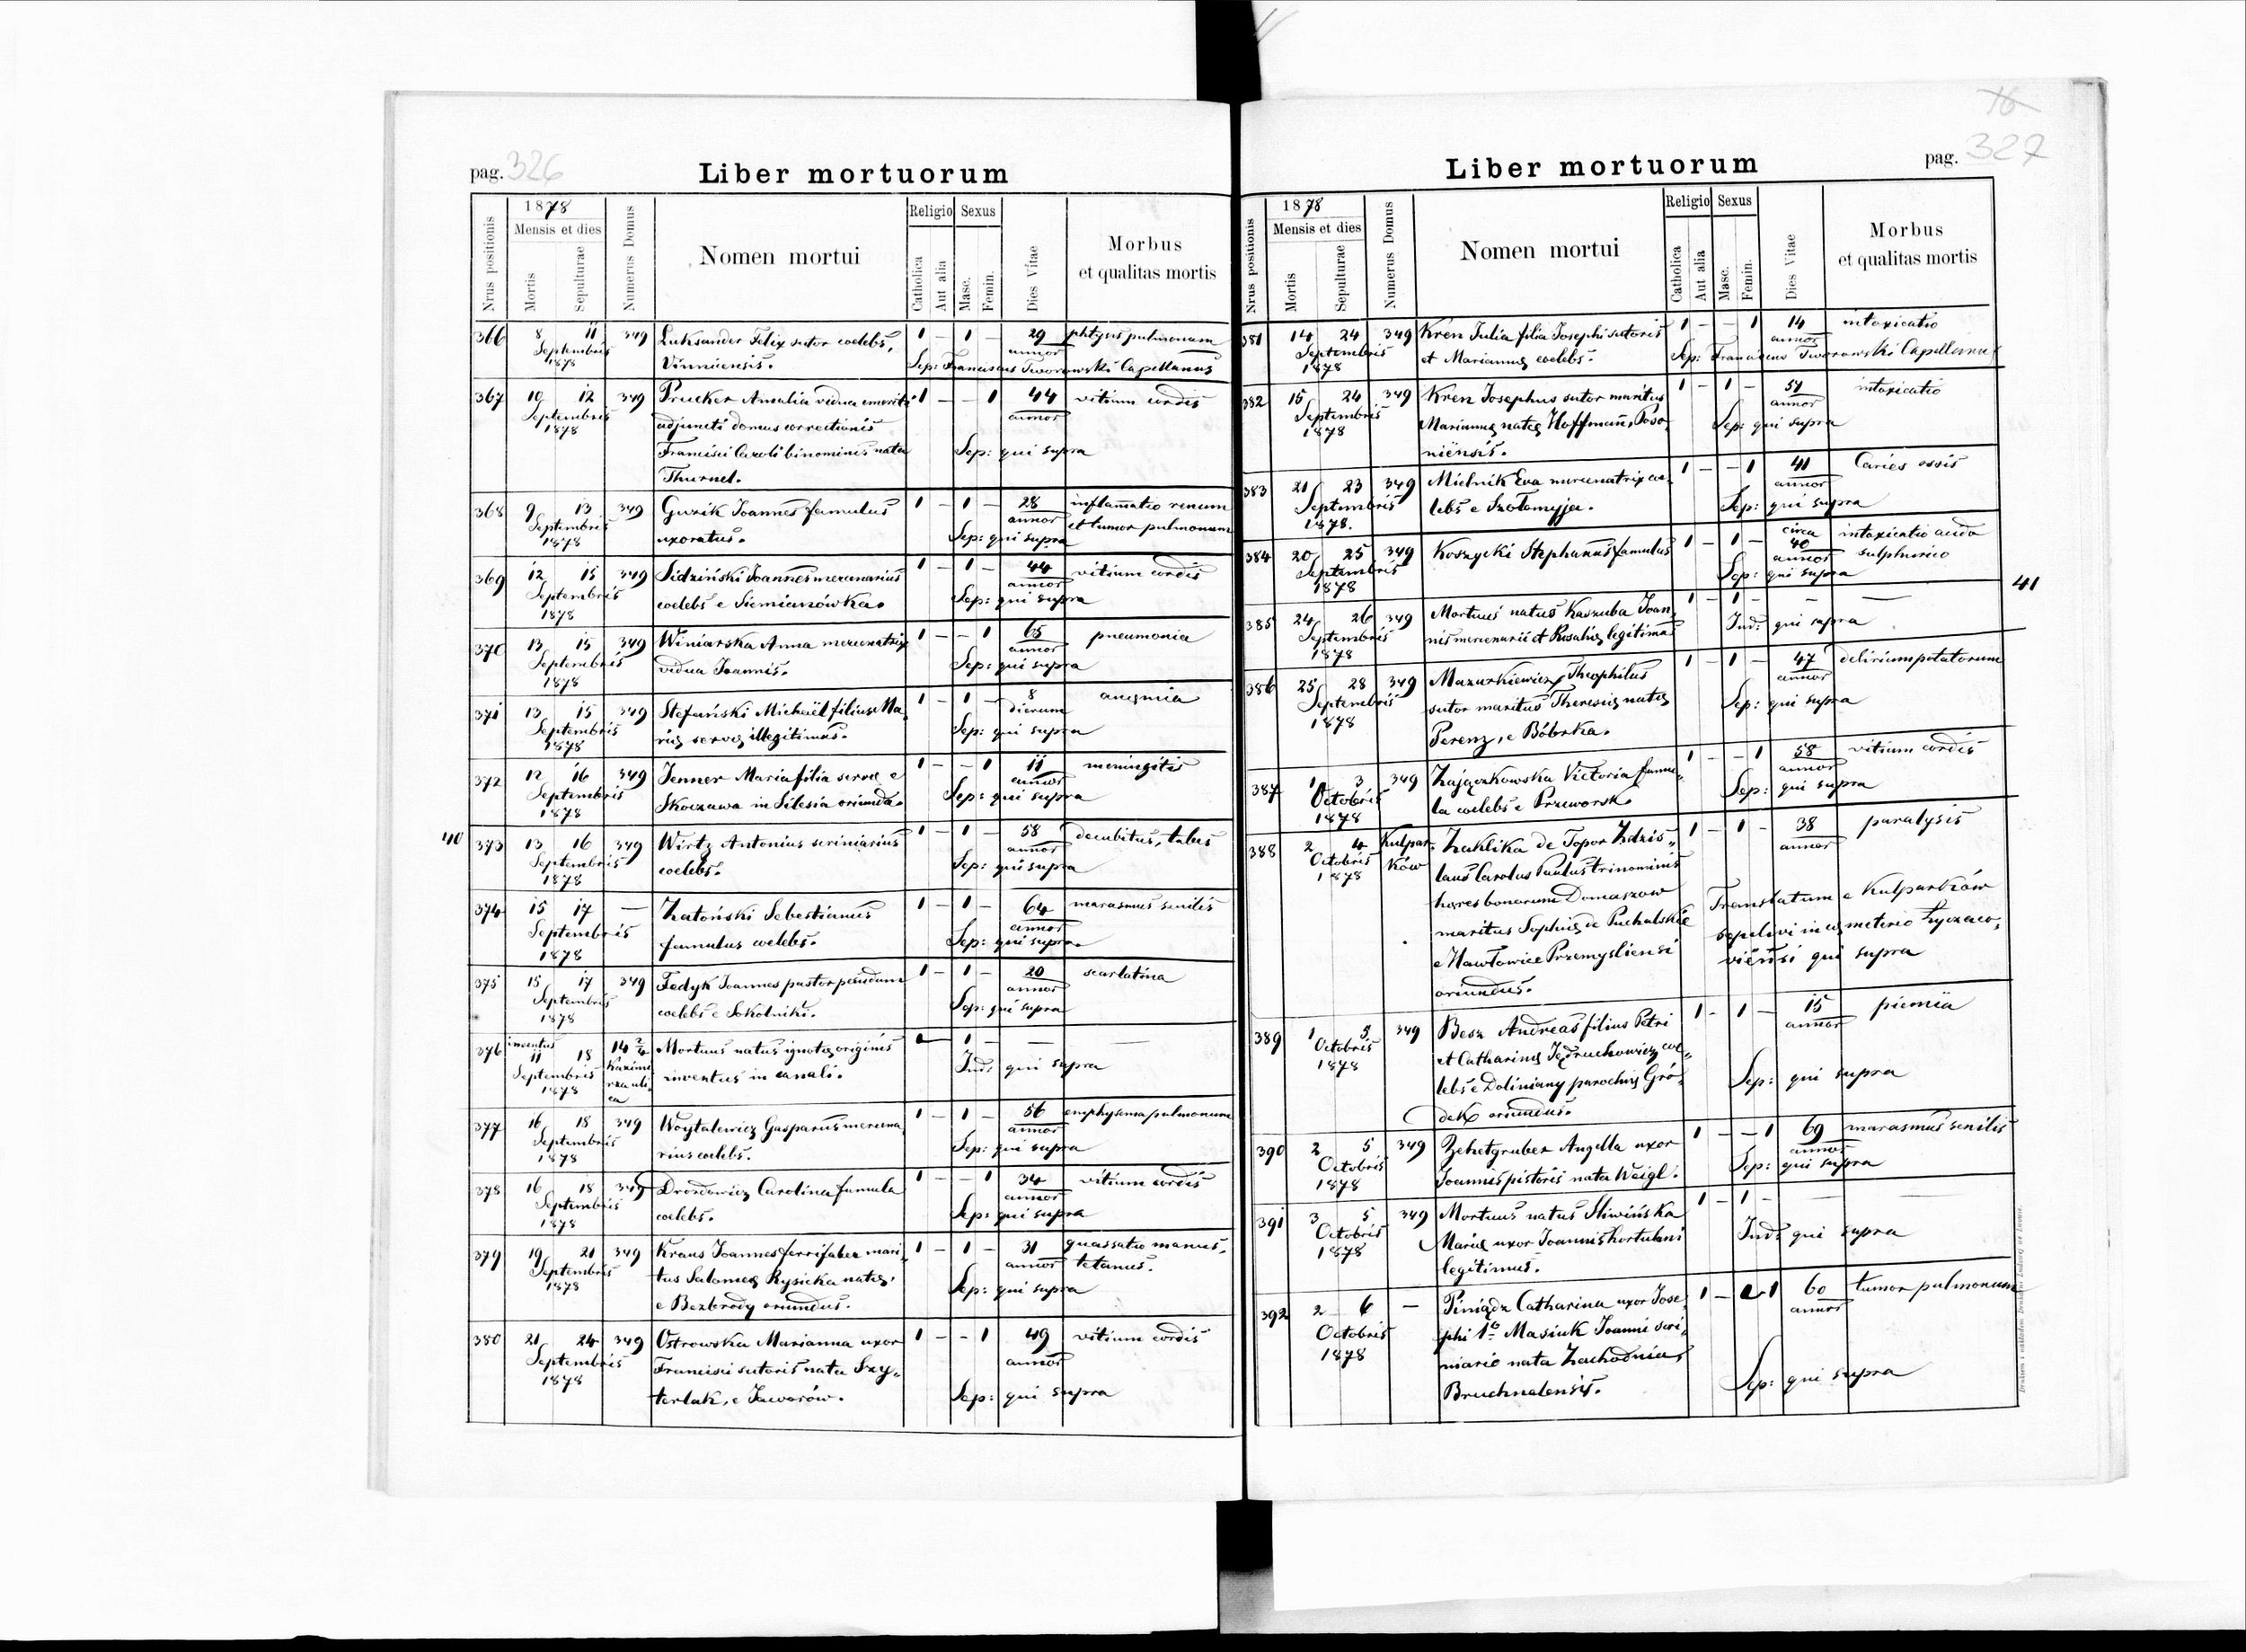 pag. 326
Liber mortuorum
Nrus positionis
1878
Mensis et dies
Mortis
Sepulturae
Numerus Domus
Nomen mortui
Religio
Catholica
Aut alia
Sexus
Masc.
Femin.
Dies Vitae
Morbus
et qualitas mortis
366 8 11 349 Luksander Felix sutor coelebs, 1 - 1 - 29 phtysis pulmonum
Septembris annor
1878 Vinniensis. Sep: Franciscus Tworowski Capellanus
367 10 12 349 Prucker Amalia vidua emeriti 1 - - 1 44 vitium cordis
Septembris adjuncti domus correctionis annor
1878 Francisci Caroli binominis nata Sep: qui supra
Thurnel.
368 9 13 349 Guzik Joannes famulus 1 - 1 - 28 inflamatio renum
Septembris annor et tumor pulmonum
1878 uxoratus. Sep: qui supra
369 12 15 349 Sidziński Joannes mercenarius 1 - 1 - 44 vitium cordis
Septembris coelebs e Siemianówka. annor
1878 Sep: qui supra
370 13 15 349 Winiarska Anna mercenatrix 1 - - 1 65 pneumonia
Septembris vidua Joannis. annor
1878 Sep: qui supra
371 13 15 349 Stefański Michaël filius Ma, 1 - 1 - 8
Septembris riæ servæ illegitimus. dierum
1878 Sep: qui supra
372 12 16 349 Jenner Maria filia servæ e 1 - - 1 11 meningitis
Septembris Skoczawa in Silesia oriunda. annor
1878 Sep: qui supra
40
373 13 16 349 Wirtz Antonius scriniarius 1 - 1 - 58 decubitus, tabes
Septembris coelebs. annor
1878 Sep: qui supra
374 15 17 — Zatoński Sebestianus 1 - 1 - 64 marasmus senilis
Septembris famulus coelebs. annor
1878 Sep: qui supra
375 15 17 349 Fedyk Joannes pastor pecudum 1 - 1 - 20 scarlatina
Septembris coelebs e Sokolniki. annor
1878 Sep: qui supra
376 inventus 11 18 14 2/4 Mortuus natus ignotæ originis 1 — —
Septembris Kazimi rza uli, ca inventus in canali. Ind: qui supra
1878
377 16 18 349 Woytalewicz Gasparus mercena, 1 - 1 - 56 emphysema pulmonum
Septembris rius coelebs. annor
1878 Sep: qui supra
378 16 18 349 Drozdowicz Carolina famula 1 - - 1 34 vitium cordis
Septembris coelebs. annor
1878 Sep: qui supra
379 19 21 349 Kraus Joannes ferrifaber mari, 1 - 1 - 31 quassatio manus,
Septembris tus Salomeæ Rysicka natæ, annor tetanus.
1878 e Bezbrody oriundus. Sep: qui supra
380 21 24 349 Ostrowska Marianna uxor 1 - - 1 49 vitium cordis
Septembris Francisci sutoris nata Szy, annor
1878 terlak, e Jaworów. Sep: qui supra
pag. 327
Liber mortuorum
Nrus positionis
1878
Mensis et dies
Mortis
Sepulturae
Numerus Domus
Nomen mortui
Religio
Catholica
Aut alia
Sexus
Masc.
Femin.
Dies Vitae
Morbus
et qualitas mortis
381 14 24 349 Kren Julia filia Josephi sutoris 1 - - 1 14 intoxicatio
Septembris annor
1878 et Mariannæ coelebs. Sep: Franciscus Tworowski Capellanus
382 15 24 349 Kren Josephus sutor maritus 1 - 1 - intoxicatio
Septembris Mariannæ natæ Hoffmann, Poso, annor
1878 niënsis. Sep: qui supra
383 21 23 349 Mielnik Eva mercenatrix coe, 1 - - 1 41 Caries ossis
Septembris lebs e Szołomyja. annor
1878. Sep: qui supra
384 20 25 349 Koszycki Stephanus famulus 1 - 1 - circa 40 intoxicatio acido
Septembris annor sulphurico
1878 Sep: qui supra
41
385 24 26 349 Mortuus natus Kaszuba Joan, 1 - 1 - - —
Septembris nis mercenarii et Rosaliæ legitimus Ind: qui supra
1878
386 25 28 349 Mazurkiewicz Theophilus 1 - 1 - 47 delirium potatorum
Septembris sutor maritus Theresiæ natæ annor
1878 Perenz, e Bóbrka. Sep: qui supra
387 1 3 349 Zajączkowska Victoria famu, 1 - - 1 58 vitium cordis
Octobris la coelebs e Przeworsk. annor
1878 Sep: qui supra
388 2 4 Kulpar, ków Zaklika de Topor Zdzis, 1 - 1 - 38 paralysis
Octobris laus Carolus Paulus trinominis annor
1878 hæres bonorum Domaszow Translatum e Kulparków
maritus Sophiæ de Puchalskie sepelivi in cæmeterio Łyczaco,
e Hawłowice Przemysliensi viënsi qui supra
oriundus.
389 1 5 349 Besz Andreas filius Petri 1 - 1 - 15 piemiä
Octobris et Catharinæ Jędruchowicz coe, annor
1878 lebs e Doliniany parochiæ Gró, Sep: qui supra
dek oriundus.
390 2 5 349 Zehetgruber Angella uxor 1 - - 1 69 marasmus senilis
Octobris Joannis pistoris nata Weigl. annor
1878 Sep: qui supra
391 3 5 349 Mortuus natus Śliwińska 1 - 1 - — —
Octobris Mariæ uxor Joannis hortulani Ind: qui supra
1878 legitimus.
392 2 6 — Piniądz Catharina uxor Jose, 1 - 1 60 tumor pulmonum
Octobris phi 1º Masiuk Joanni scri, annor
1878 niario nata Zachodnia, Sep: qui supra
Bruchnalensis.